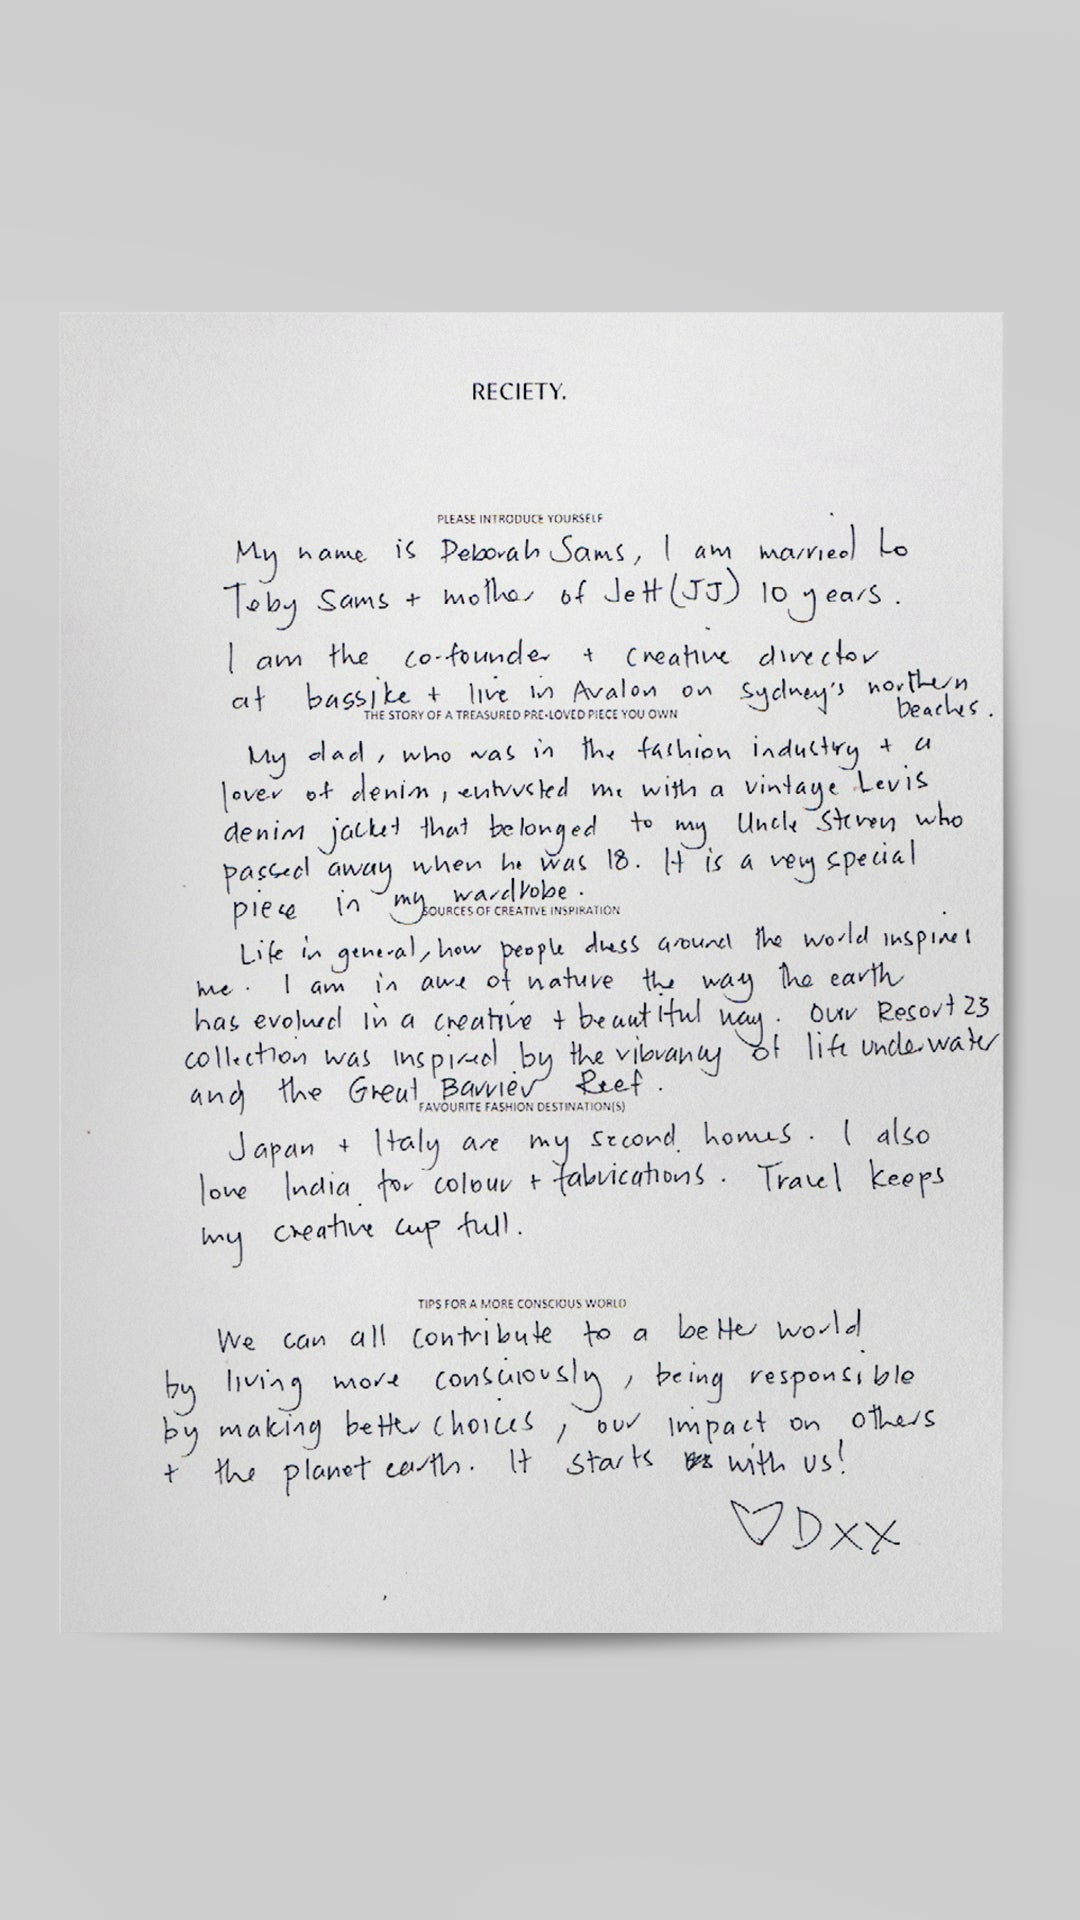 RECIETY.
PLEASE INTRODUCE YOURSELF
My name is Deborah Sams, I am married to
Toby Sams + mother of Jett (JJ) 10 years.
I am the co-founder + creative director
at bassike + live in Avalon on Sydney's northern
beaches.
THE STORY OF A TREASURED PRE-LOVED PIECE YOU OWN
My dad, who was in the fashion industry + a
lover of denim, entrusted me with a vintage Levis
denim jacket that belonged to my Uncle Steven who
passed away when he was 18. It is a very special
piece in my wardrobe.
SOURCES OF CREATIVE INSPIRATION
Life in general, how people dress around the world inspires
me. I am in awe of nature the way the earth
has evolved in a creative + beautiful way. Our Resort 23
collection was inspired by the vibrancy of life underwater
and the Great Barrier Reef.
FAVOURITE FASHION DESTINATION(S)
Japan + Italy are my second homes. I also
love India for colour + fabrications. Travel keeps
my creative cup full.
TIPS FOR A MORE CONSCIOUS WORLD
We can all contribute to a better world
by living more consciously, being responsible
by making better choices, our impact on others
+ the planet earth. It starts with us!
♡ D x x